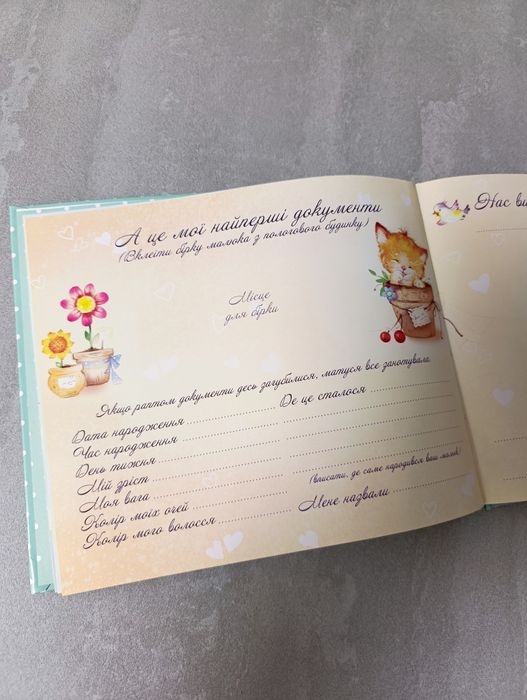 А це мої найперші документи
(Вклеїти бірку малюка з пологового будинку)
Місце
для бірки
Якщо раптом документи десь загубилися, матуся все занотувала.
Дата народження
Час народження
День тижня
Мій зріст
Моя вага
Колір моїх очей
Колір мого волосся
Де це сталося
(вписати, де саме народився ваш малюк)
Мене назвали
Нас ви